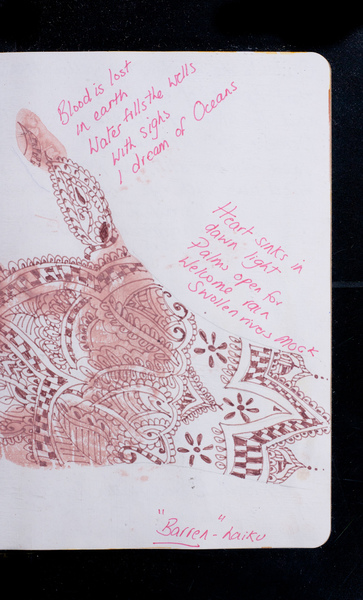 Blood is lost
in earth
Water fills the wells
With sighs
I dream of Oceans
Heart sinks in
dawn light
Palms open for
Welcome rain
Swollen rivers mock
"Barren" - haiku